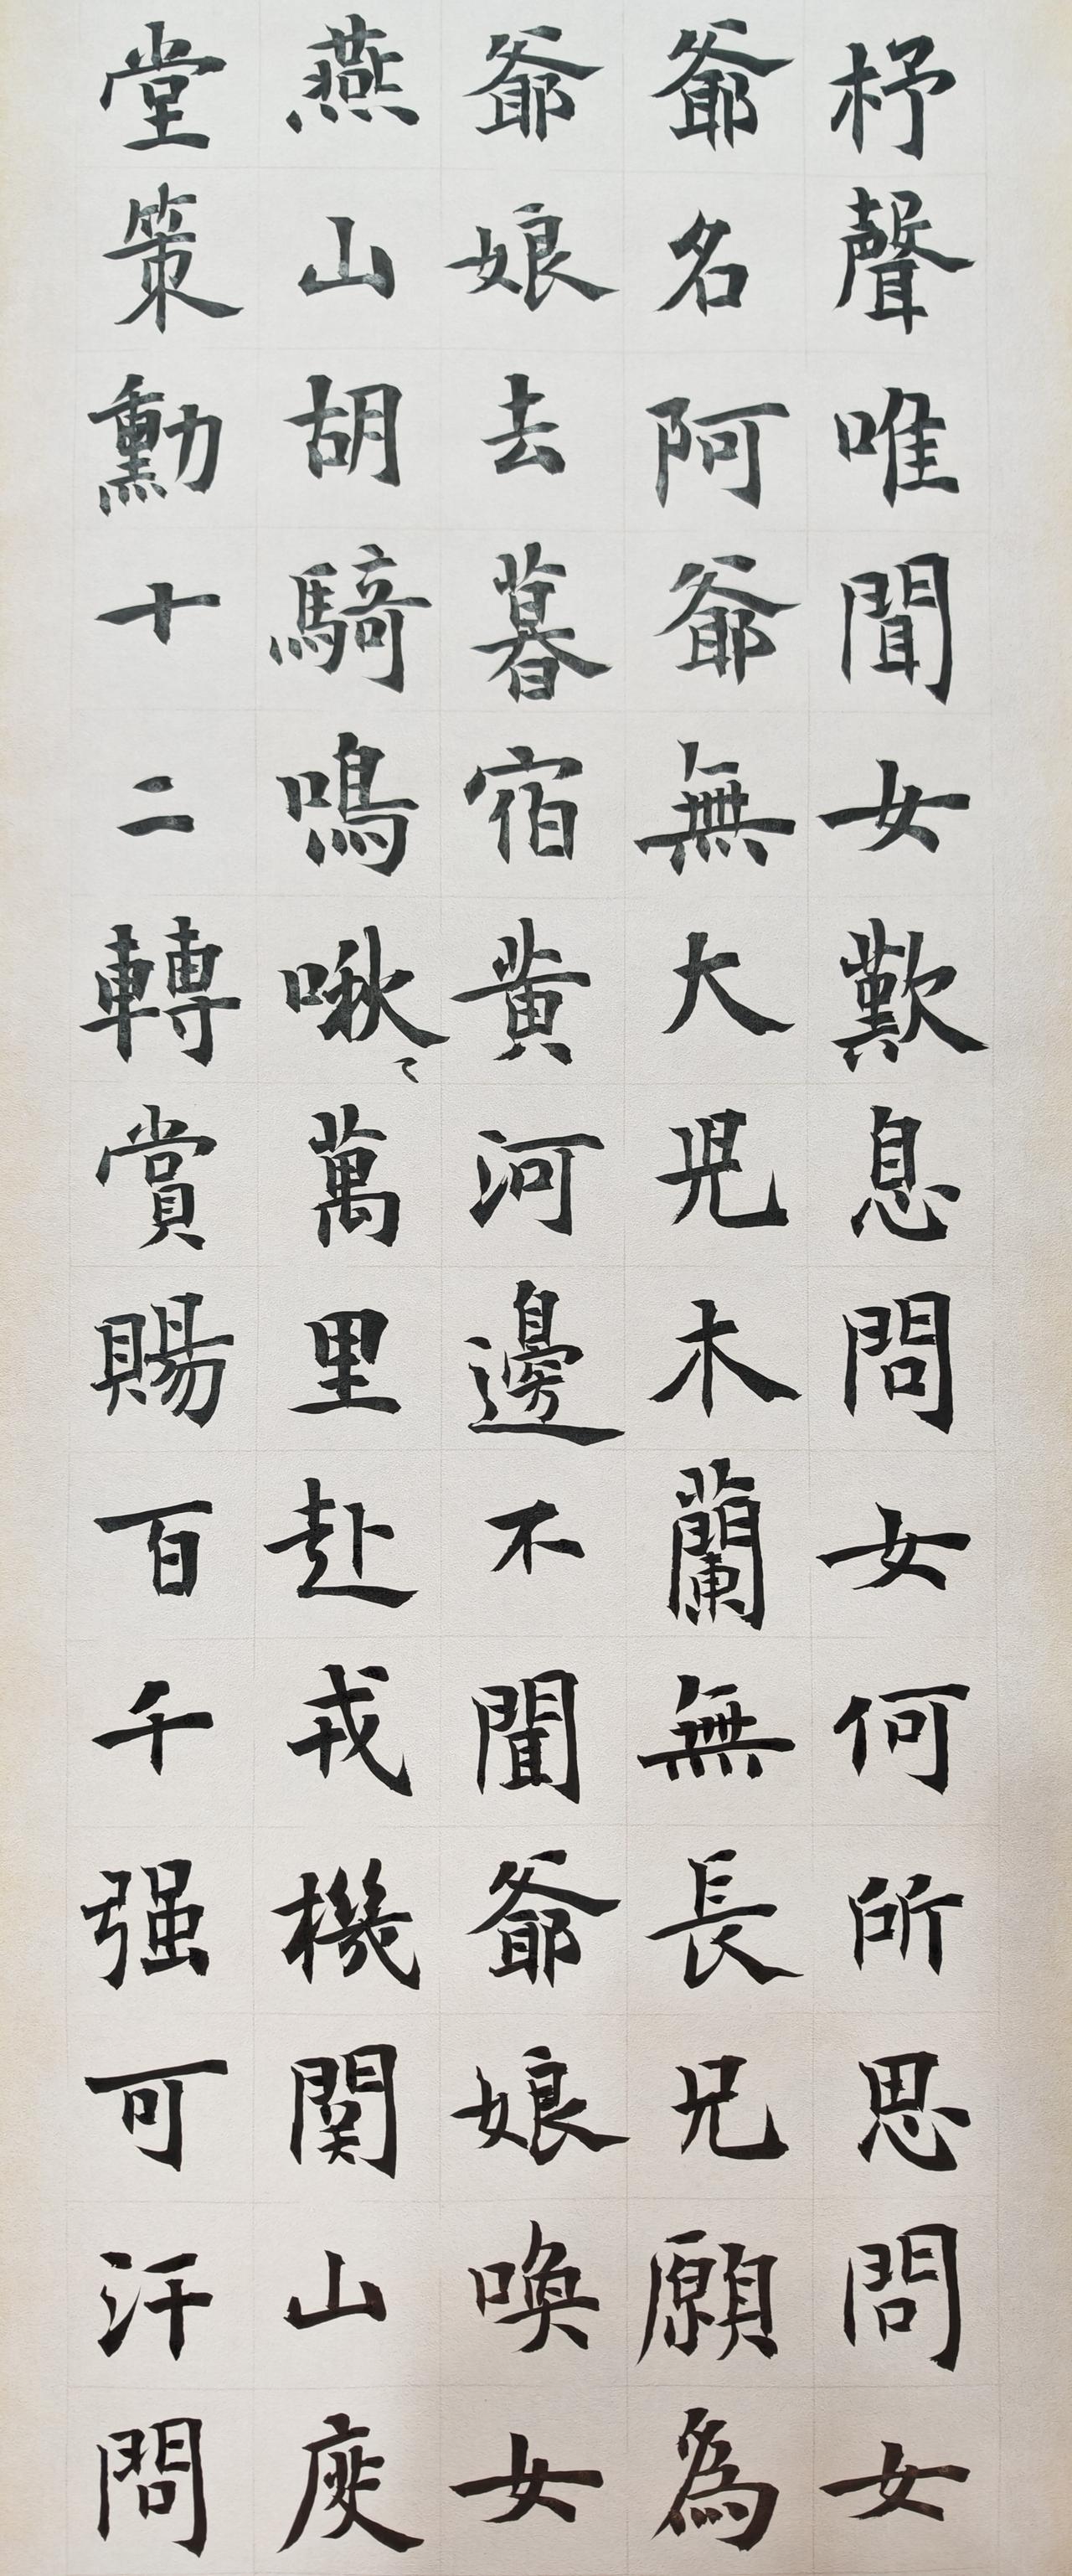 杼聲唯聞女歎息問女何所思問女
爺名阿爺無大兒木蘭無長兄願為
爺娘去暮宿黄河邊不聞爺娘喚女
燕山胡騎鳴啾々萬里赴戎機関山度
堂策勳十二轉賞賜百千强可汗問